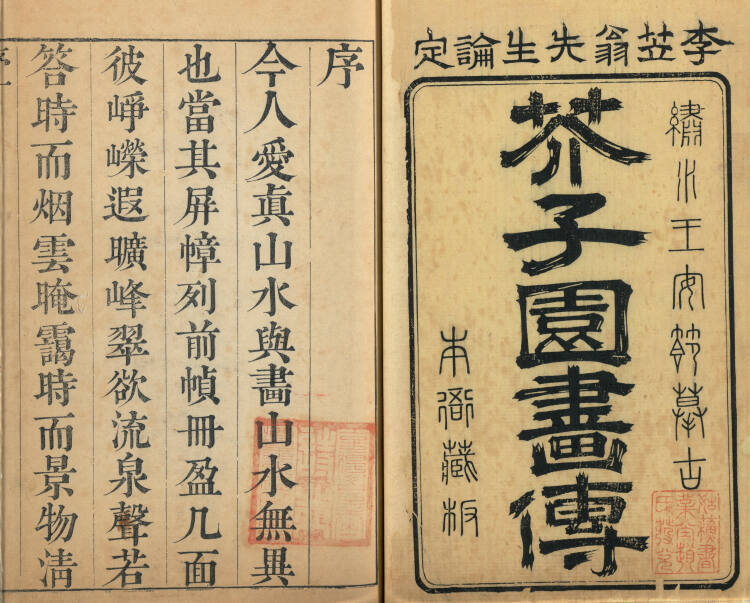 李笠翁先生論定
繡水王安節摹古
芥子園畫傳
本衙藏板
序
今人愛眞山水與畵山水無異
也當其屏幛列前幀冊盈几面
彼崢嶸遐曠峰翠欲流泉聲若
答時而烟雲晻靄時而景物淸
序一